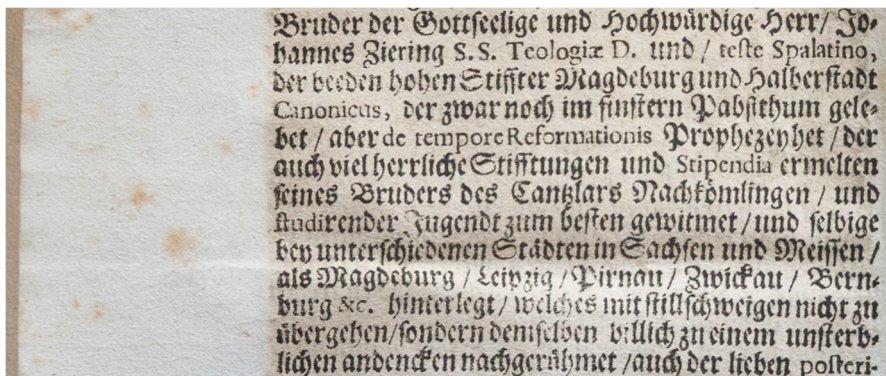 Bruder der Gottseelige und Hochwürdige Herr/ Jo-
hannes Ziering S.S. Teologiæ D. und / teste Spalatino,
der beeden hohen Stiffter Magdeburg und Halberstadt
Canonicus, der zwar noch im finstern Pabstthum gele-
bet / aber de tempore Reformationis Prophezeyhet / der
auch viel herrliche Stifftungen und Stipendia ermelten
seines Bruders des Cantzlars Nachkömlingen / und
studirender Jugendt zum besten gewitmet / und selbige
bey unterschiedenen Städten in Sachsen und Meissen /
als Magdeburg / Leipzig / Pirnau / Zwickau / Bern-
burg &c. hinterlegt / welches mit stillschweigen nicht zu
übergehen/sondern demselben billich zu einem unsterb-
lichen andencken nachgerühmet /auch der lieben posteri-